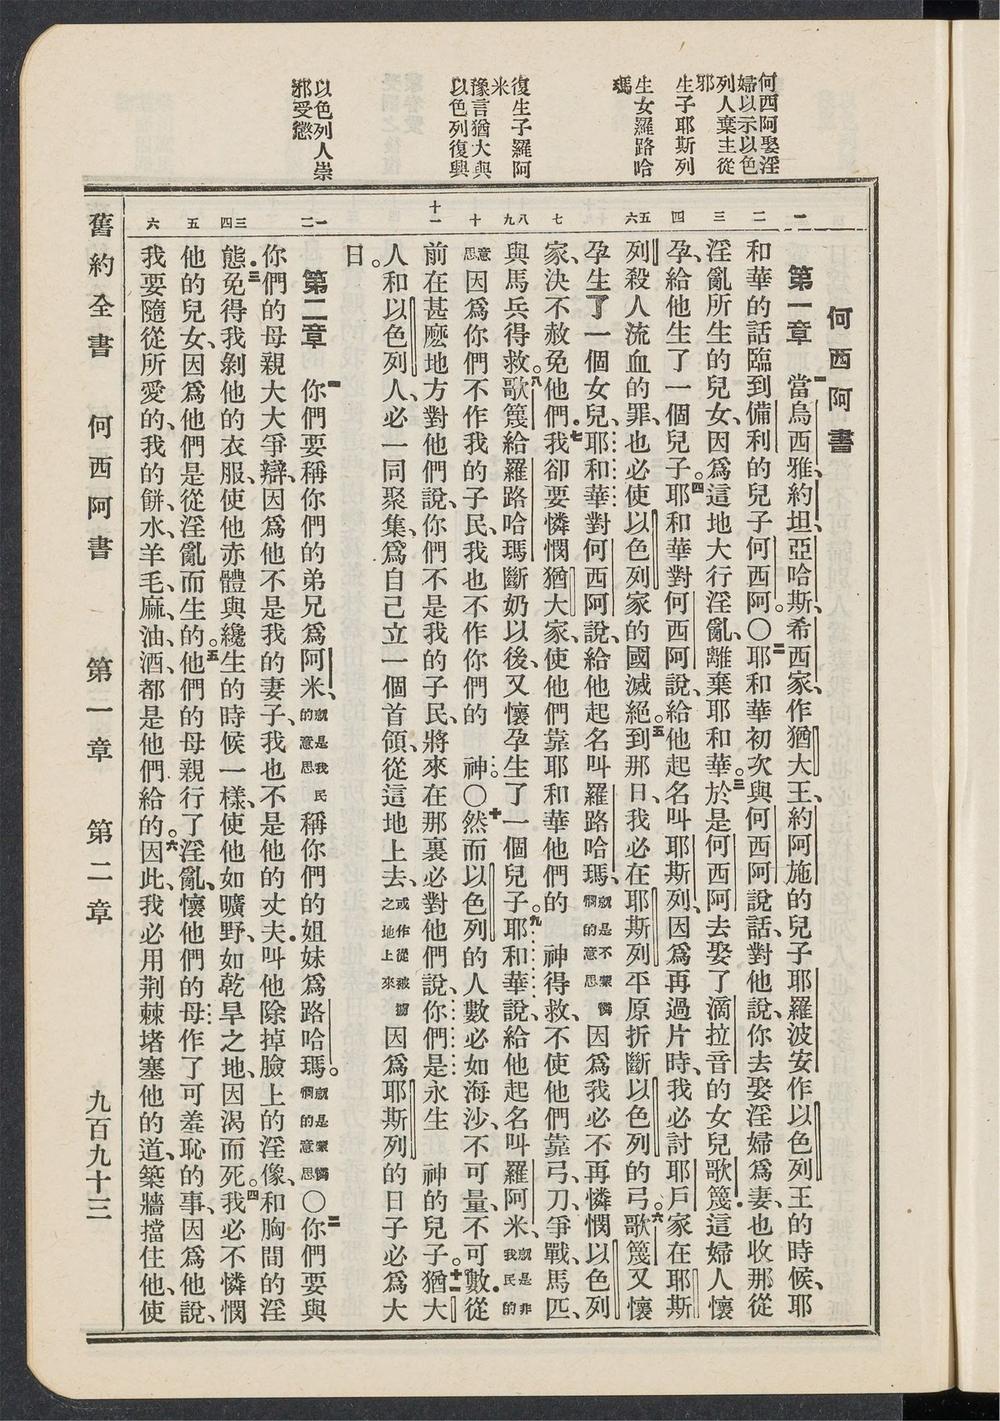 何西阿娶淫
婦以示以色
列人棄主從
邪
生子耶斯列
生女羅路哈
瑪
復生子羅阿
米
豫言猶大與
以色列復興
以色列人崇
邪受懲
何西阿書
一 二 三 四 五 六 七 八 九 十 十一 一 二 三 四 五 六
第一章 一當烏西雅、約坦、亞哈斯、希西家、作猶大王、約阿施的兒子耶羅波安作以色列王的時候、耶
和華的話臨到備利的兒子何西阿。〇二耶和華初次與何西阿說話、對他說、你去娶淫婦爲妻、也收那從
淫亂所生的兒女、因爲這地大行淫亂、離棄耶和華。三於是何西阿去娶了滴拉音的女兒歌篾．這婦人懷
孕、給他生了一個兒子。四耶和華對何西阿說、給他起名叫耶斯列、因爲再過片時、我必討耶戶家在耶斯
列殺人流血的罪、也必使以色列家的國滅絕。五到那日、我必在耶斯列平原折斷以色列的弓。六歌篾又懷
孕生了一個女兒、耶和華對何西阿說、給他起名叫羅路哈瑪、就是不蒙憐憫的意思因爲我必不再憐憫以色列
家、決不赦免他們．七我卻要憐憫猶大家、使他們靠耶和華他們的 神得救、不使他們靠弓、刀、爭戰、馬匹、
與馬兵得救。八歌篾給羅路哈瑪斷奶以後、又懷孕生了一個兒子。九耶和華說、給他起名叫羅阿米、就是非我民的
意思因爲你們不作我的子民、我也不作你們的 神。〇十然而以色列的人數必如海沙、不可量、不可數．從
前在甚麽地方對他們說、你們不是我的子民、將來在那裏必對他們說、你們是永生 神的兒子。十一猶大
人和以色列人、必一同聚集、爲自己立一個首領、從這地上去、或作從被擄之地上來因爲耶斯列的日子必爲大
日。
第二章 一你們要稱你們的弟兄爲阿米、就是我民的意思稱你們的姐妹爲路哈瑪。就是蒙憐憫的意思〇二你們要與
你們的母親大大爭辯、因爲他不是我的妻子、我也不是他的丈夫．叫他除掉臉上的淫像、和胸間的淫
態．三免得我剝他的衣服、使他赤體與纔生的時候一樣、使他如曠野、如乾旱之地、因渴而死。四我必不憐憫
他的兒女、因爲他們是從淫亂而生的。五他們的母親行了淫亂、懷他們的母作了可羞恥的事、因爲他說、
我要隨從所愛的、我的餅、水、羊毛、麻、油、酒、都是他們給的。六因此、我必用荆棘堵塞他的道、築牆擋住他、使
舊約全書 何西阿書 第一章 第二章 九百九十三